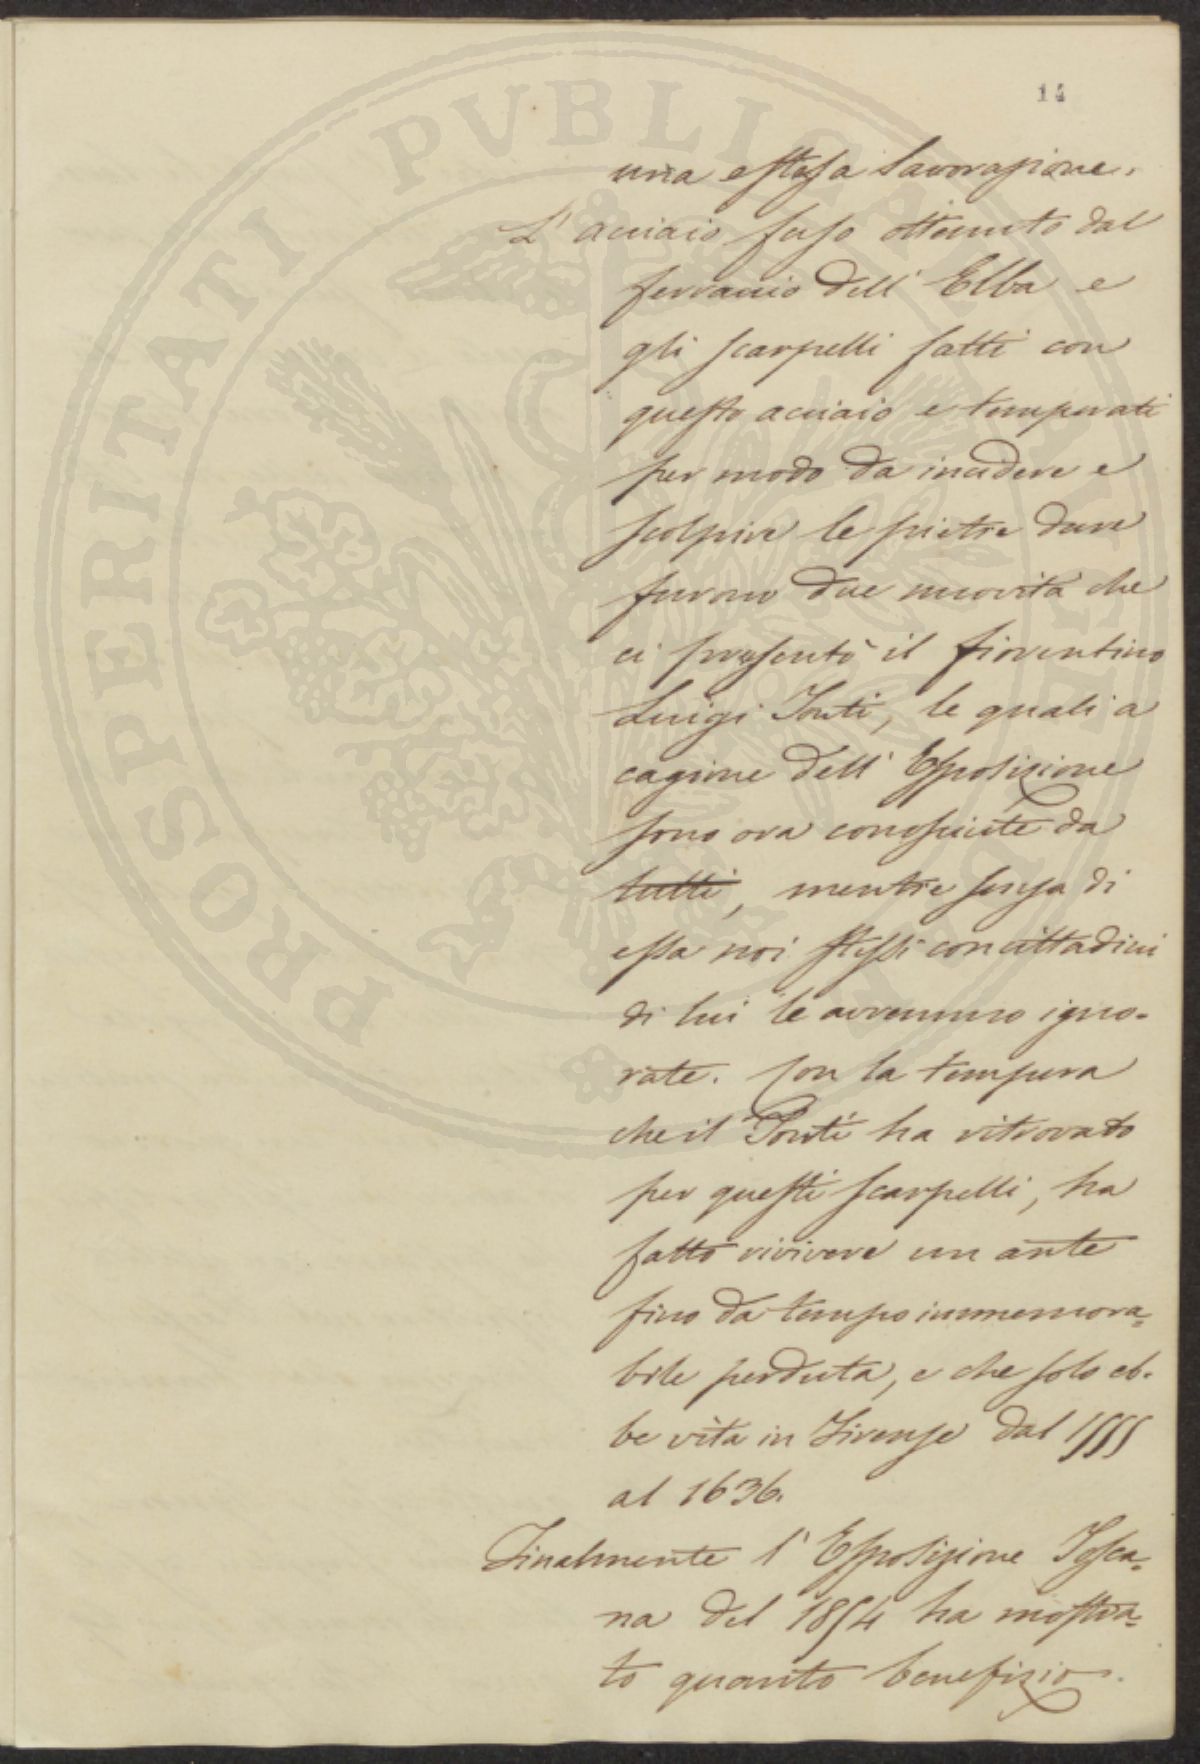 14
una estesa lavorazione.
L'acciaio fuso ottenuto dal
ferraccio dell'Elba e
gli scarpelli fatti con
questo acciaio e temperati
per modo da incidere e
scolpire le pietre dure
furono due nuovità che
ci presentò il fiorentino
Luigi Ponti, le quali a
cagione dell'Esposizione
sono ora conosciute da
tutti, mentre senza di
essa noi stessi concittadini
di lui le avremmo igno-
rate. Con la tempera
che il Ponti ha ritrovato
per questi scarpelli, ha
fatto rivivere un'arte
fino da tempo immemora=
bile perduta, e che solo eb-
be vita in Firenze dal 1555
al 1636.
Finalmente l'Esposizione Tosca=
na del 1854 ha mostra=
to quanto benefizio
PROSPERITATI PVBLICAE